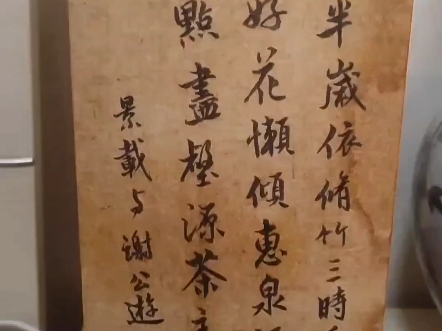 半歲依脩竹三時
好花懶傾惠泉
點盡壑源茶
景載与謝公遊